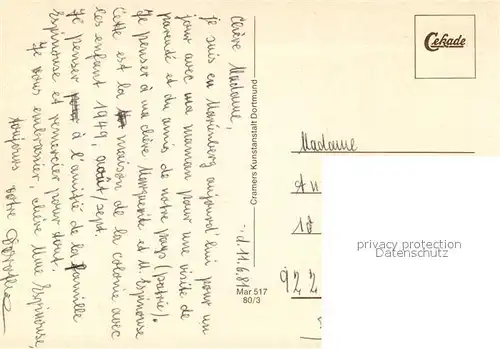 d. 11.6.81
Chère Madame,
je suis en Marienberg aujourd'hui pour un
jour avec ma maman pour une visite de
parenté et du amis de notre pays (patrie).
Je penser à ma chère Marguerite et M. Espinouse
Cette est la maison de la colonie avec
les enfant 1949, août/sept.
Je penser à l'amitié de la famille
Espinouse et remercier pour tout.
Je vous embrasser, chère Mme Espinouse,
toujours votre Dorothea
Cramers Kunstanstalt Dortmund
Mar 517
80/3
Cekade
Madame
An
18
922
privacy protection
Datenschutz